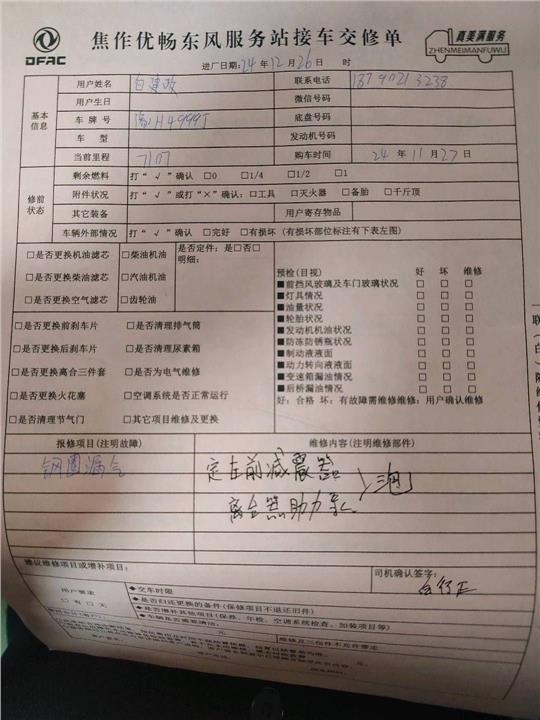 DFAC
焦作优畅东风服务站接车交修单
真美满服务
ZHENMEIMANFUWU
进厂日期:24年12月26日 时
基本信息
用户姓名 联系电话
用户生日 微信号码
车牌号 豫H4999J 底盘号码
车型 发动机号码
当前里程 7107 购车时间 24年11月27日
修前状态
剩余燃料 打“√”确认 □0 □1/4 □1/2 □1
附件状况 打“√”或打“×”确认:□工具 □灭火器 □备胎 □千斤顶
其它装备 用户寄存物品
车辆外部情况 打“√”确认 □完好 □有损坏(有损坏部位标注有下表左图)
□是否更换机油滤芯 □柴油机油 是否定件:是□否□
明细:
□是否更换柴油滤芯 □汽油机油
□是否更换空气滤芯 □齿轮油
□是否更换前刹车片 □是否清理排气筒
□是否更换后刹车片 □是否清理尿素箱
□是否更换离合三件套 □是否为电气维修
□是否更换火花塞 □空调系统是否正常运行
□是否清理节气门 □其它项目维修及更换
预检(目视) 好 坏 维修
■前挡风玻璃及车门玻璃状况 □ □ □
■灯具情况 □ □ □
■油量状况 □ □ □
■轮胎状况 □ □ □
■发动机机油状况 □ □ □
■防冻防锈瓶状况 □ □ □
■制动液液面 □ □ □
■动力转向液液面 □ □ □
■变速箱漏油情况 □ □ □
■后桥漏油情况 □ □ □
好:合格 坏:有故障需维修维修:用户确认维修
报修项目(注明故障) 维修内容(注明维修部件)
钢圈漏气 定左前减震器
离合器助力泵
建议维修项目或增补项目: 司机确认签字:
用户要求
□有 □无
◆交车时限
◆是否归还更换的备件(保修项目不退还旧件)
◆是否增补其他项目(保养、年检、空调系统检查、加装项目等)
◆车辆是否需要清洁: